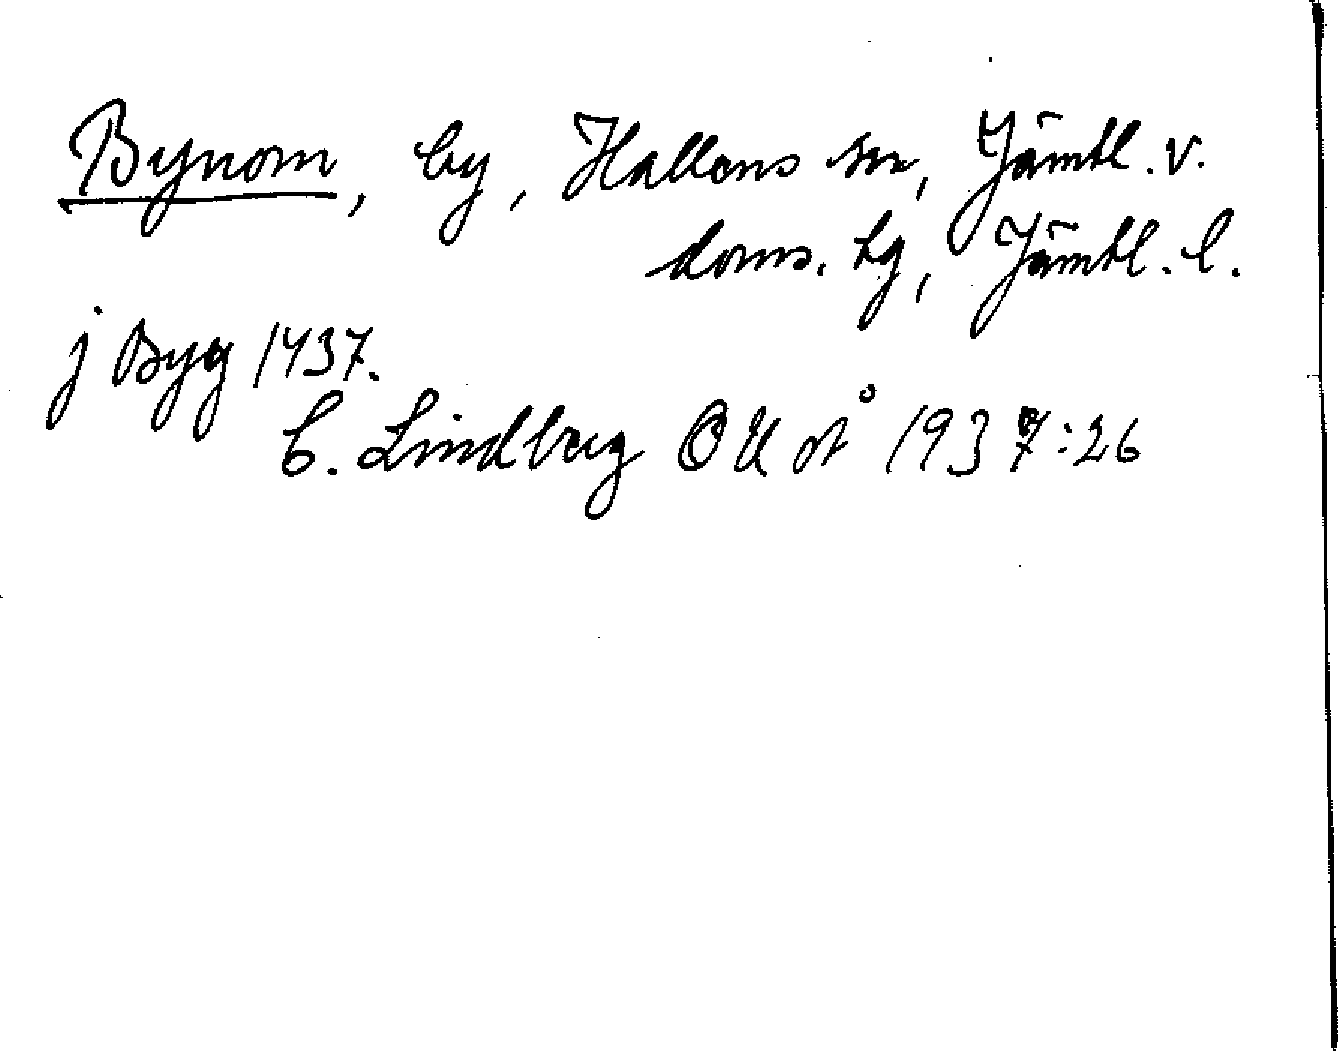 Bynom, by, Hallens sn, Jämtl. v.
doms. tg, Jämtl. l.
j Byg 1437.
C. Lindberg OUoÅ 1937:26